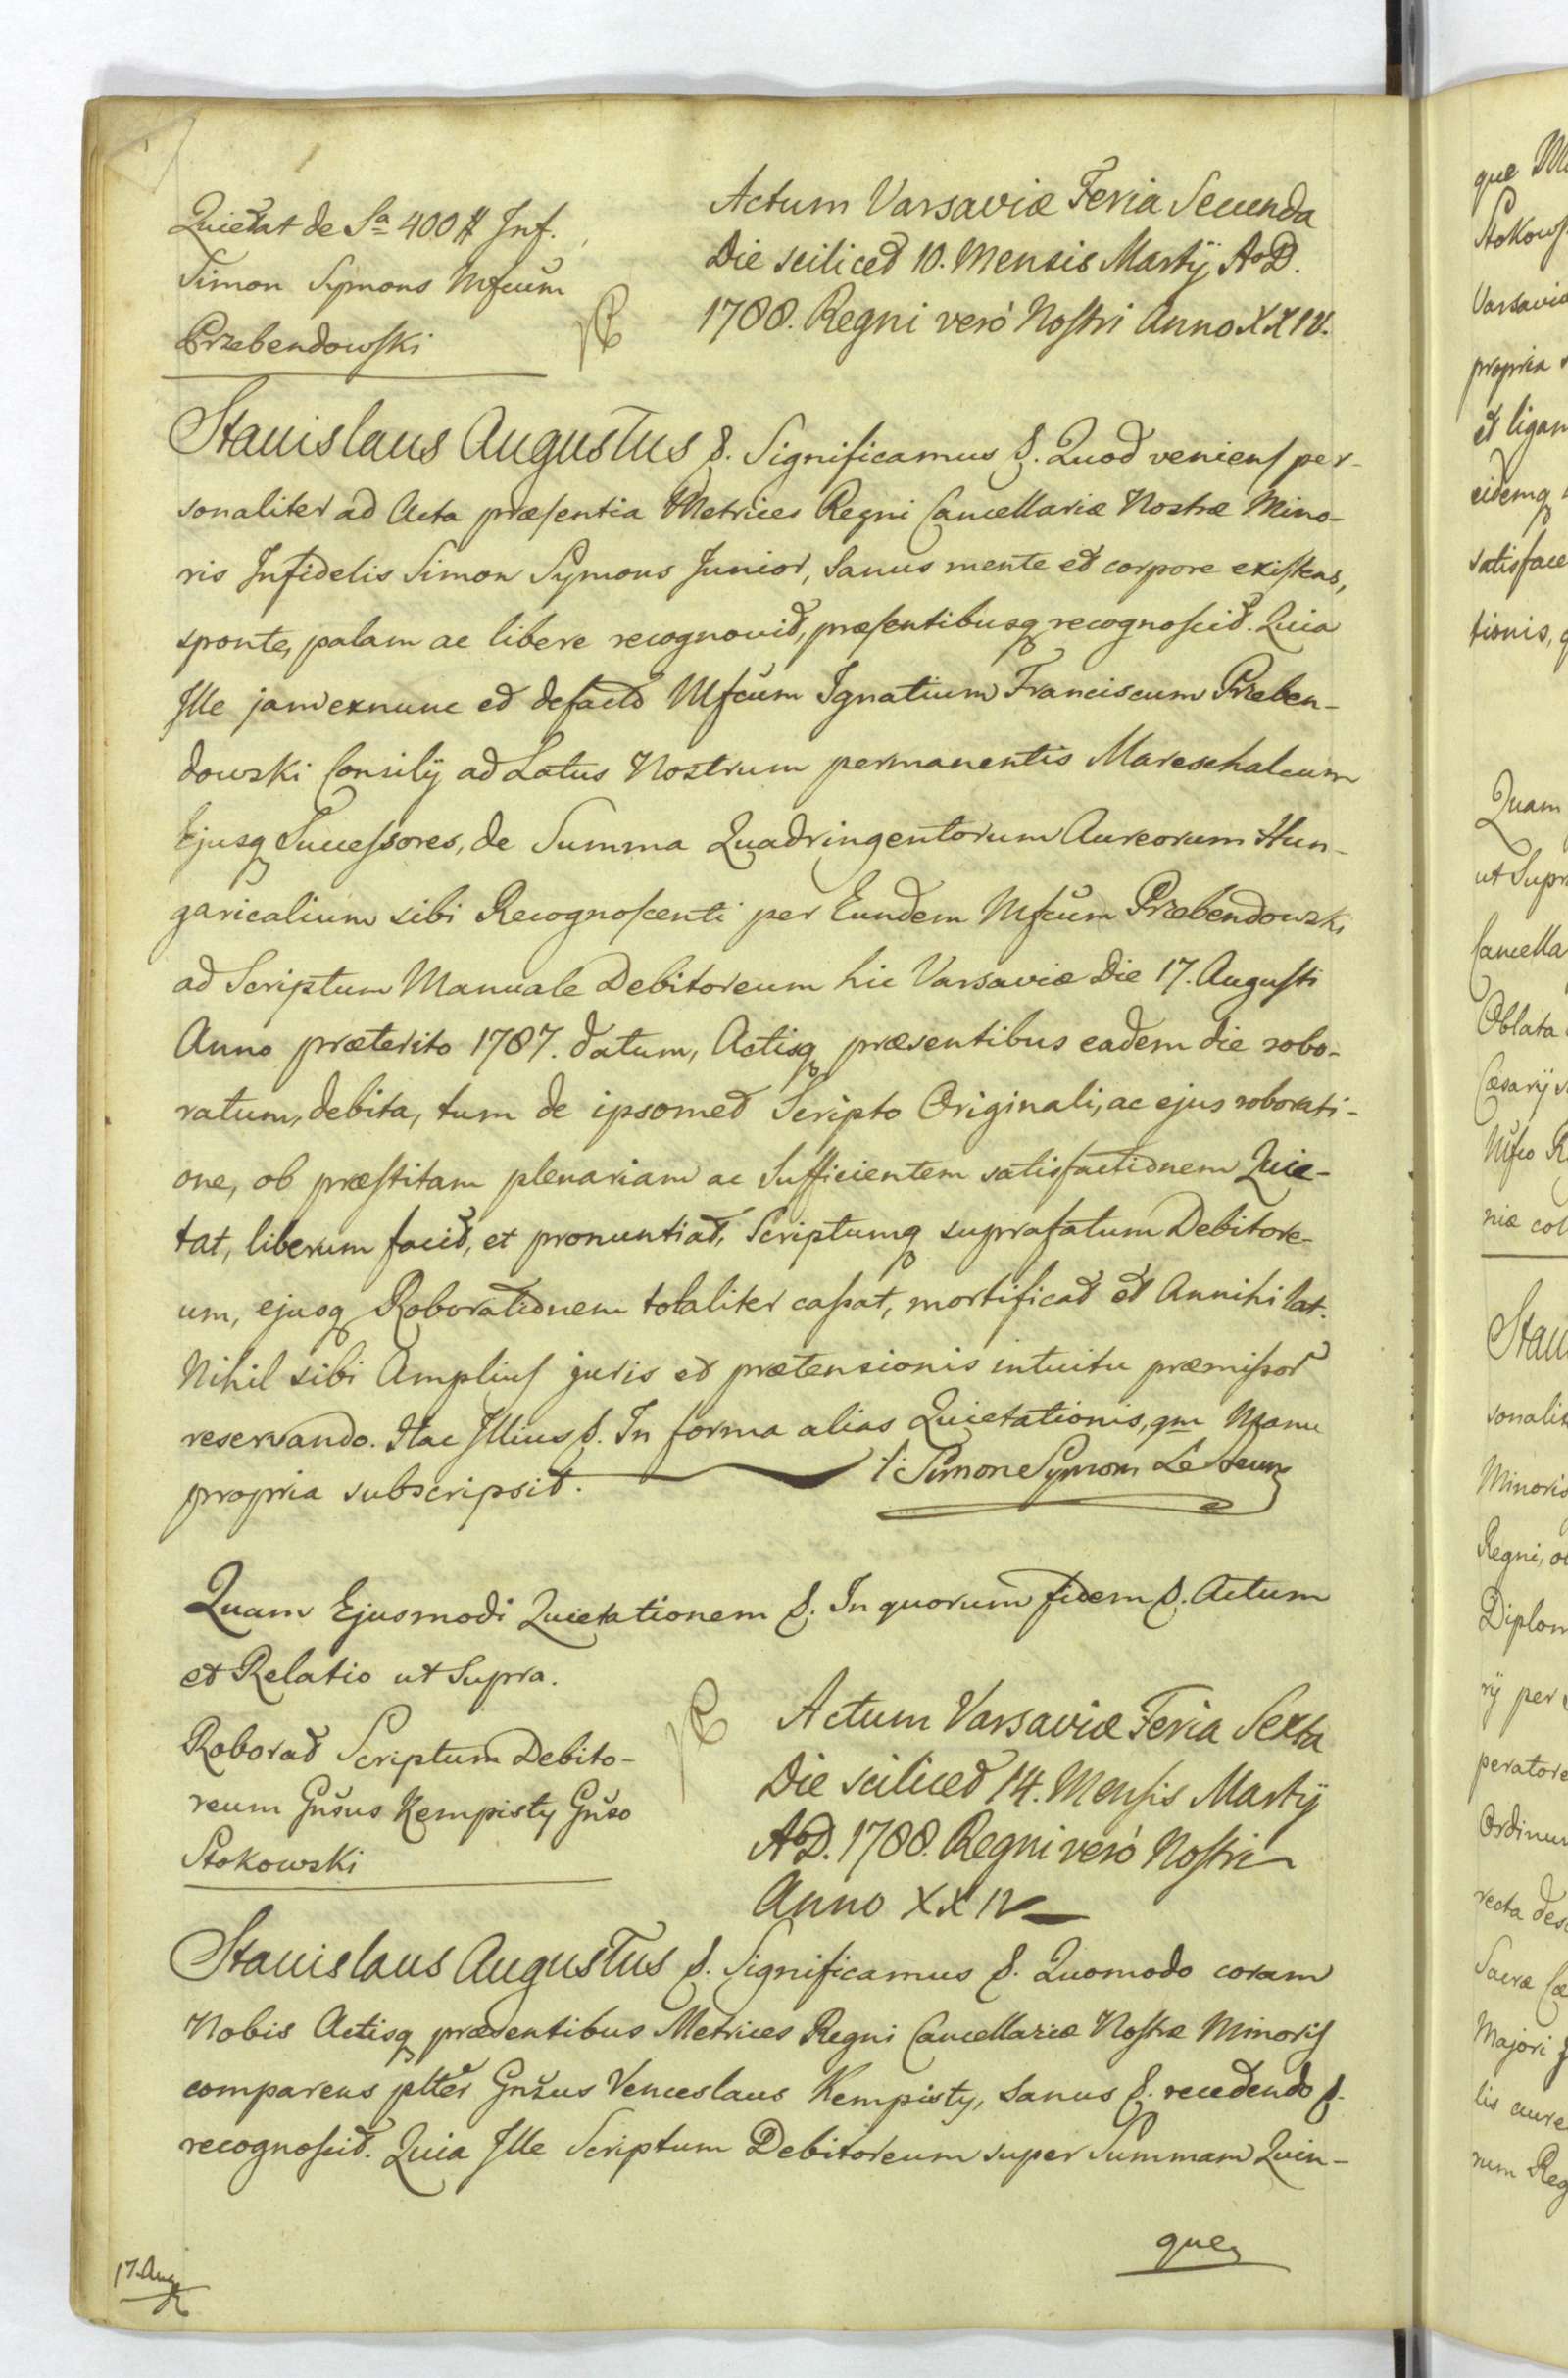 Quietat de Sa 400 # Inf.
Simon Symons Mfcum
Przebendowski
Actum Varsaviæ Feria Secunda
Die scilicet 10. Mensis Martÿ AoD.
1788. Regni verò Nostri Anno XXIV.
Stanislaus Augustus &. Significamus &. Quod veniens per-
sonaliter ad Acta præsentia Metrices Regni Cancellariæ Nostræ Mino-
ris Infidelis Simon Symons Junior, Sanus mente et corpore existens,
sponte, palam ac libere recognovit, præsentibusq recognoscit. Quia
Ille jam exnunc et defacto Mfcum Ignatium Franciscum Przeben-
dowski Consilÿ ad Latus Nostrum permanentis Mareschalcum
Ejusq Successores, de Summa Quadringentorum Aureorum Hun-
garicalium sibi Recognoscenti per Eundem Mfcum Przebendowski
ad Scriptum Manuale Debitoreum hic Varsaviæ Die 17. Augusti
Anno præterito 1787. datum, Actisq præsentibus eadem die robo-
ratum, debita, tum de ipsomet Scripto Originali, ac ejus roborati-
one, ob præstitam plenariam ac Sufficientem satisfactionem Quie-
tat, liberum facit, et pronuntiat, Scriptumq suprafatum Debitore-
um, ejusq Roborationem totaliter cassat, mortificat et Annihilat.
Nihil sibi Amplius juris et prætensionis intuitu præmissor
reservando. Hac Illius &. In forma alias Quietationis, qm Manu
propria subscripsit. Simone Symons Le Jeune
Quam Ejusmodi Quietationem &. In quorum fidem &. Actum
et Relatio ut Supra.
Roborat Scriptum Debito-
reum Gnsus Kempisty Gnso
Stokowski
Actum Varsaviæ Feria Sexta
Die scilicet 14. Mensis Martÿ
AoD. 1788. Regni verò Nostri
Anno XXIV
Stanislaus Augustus &. Significamus &. Quomodo coram
Nobis Actisq præsentibus Metrices Regni Cancellariæ Nostræ Minoris
comparens plter Gnsus Venceslaus Kempisty, Sanus &. recedendo &.
recognoscit. Quia Ille Scriptum Debitoreum super Summam Quin-
que
17. Aug
que
Stokows
Varsavia
propria
et ligam
eidemq
satisface
tionis,
Quam
ut Supra
Cancella
Oblata
Cæsarÿ
Mfco R
niæ col
Stani
sonalit
Minoris
Regni,
Diplom
rÿ per
peratore
Ordinum
recta des
Sacræ Cæ
Majori
lis aure
rum Reg